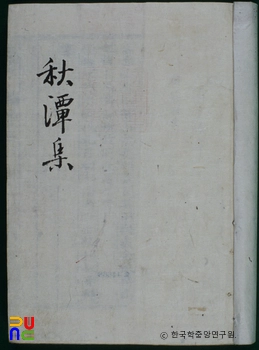 秋潭集
© 한국학중앙연구원